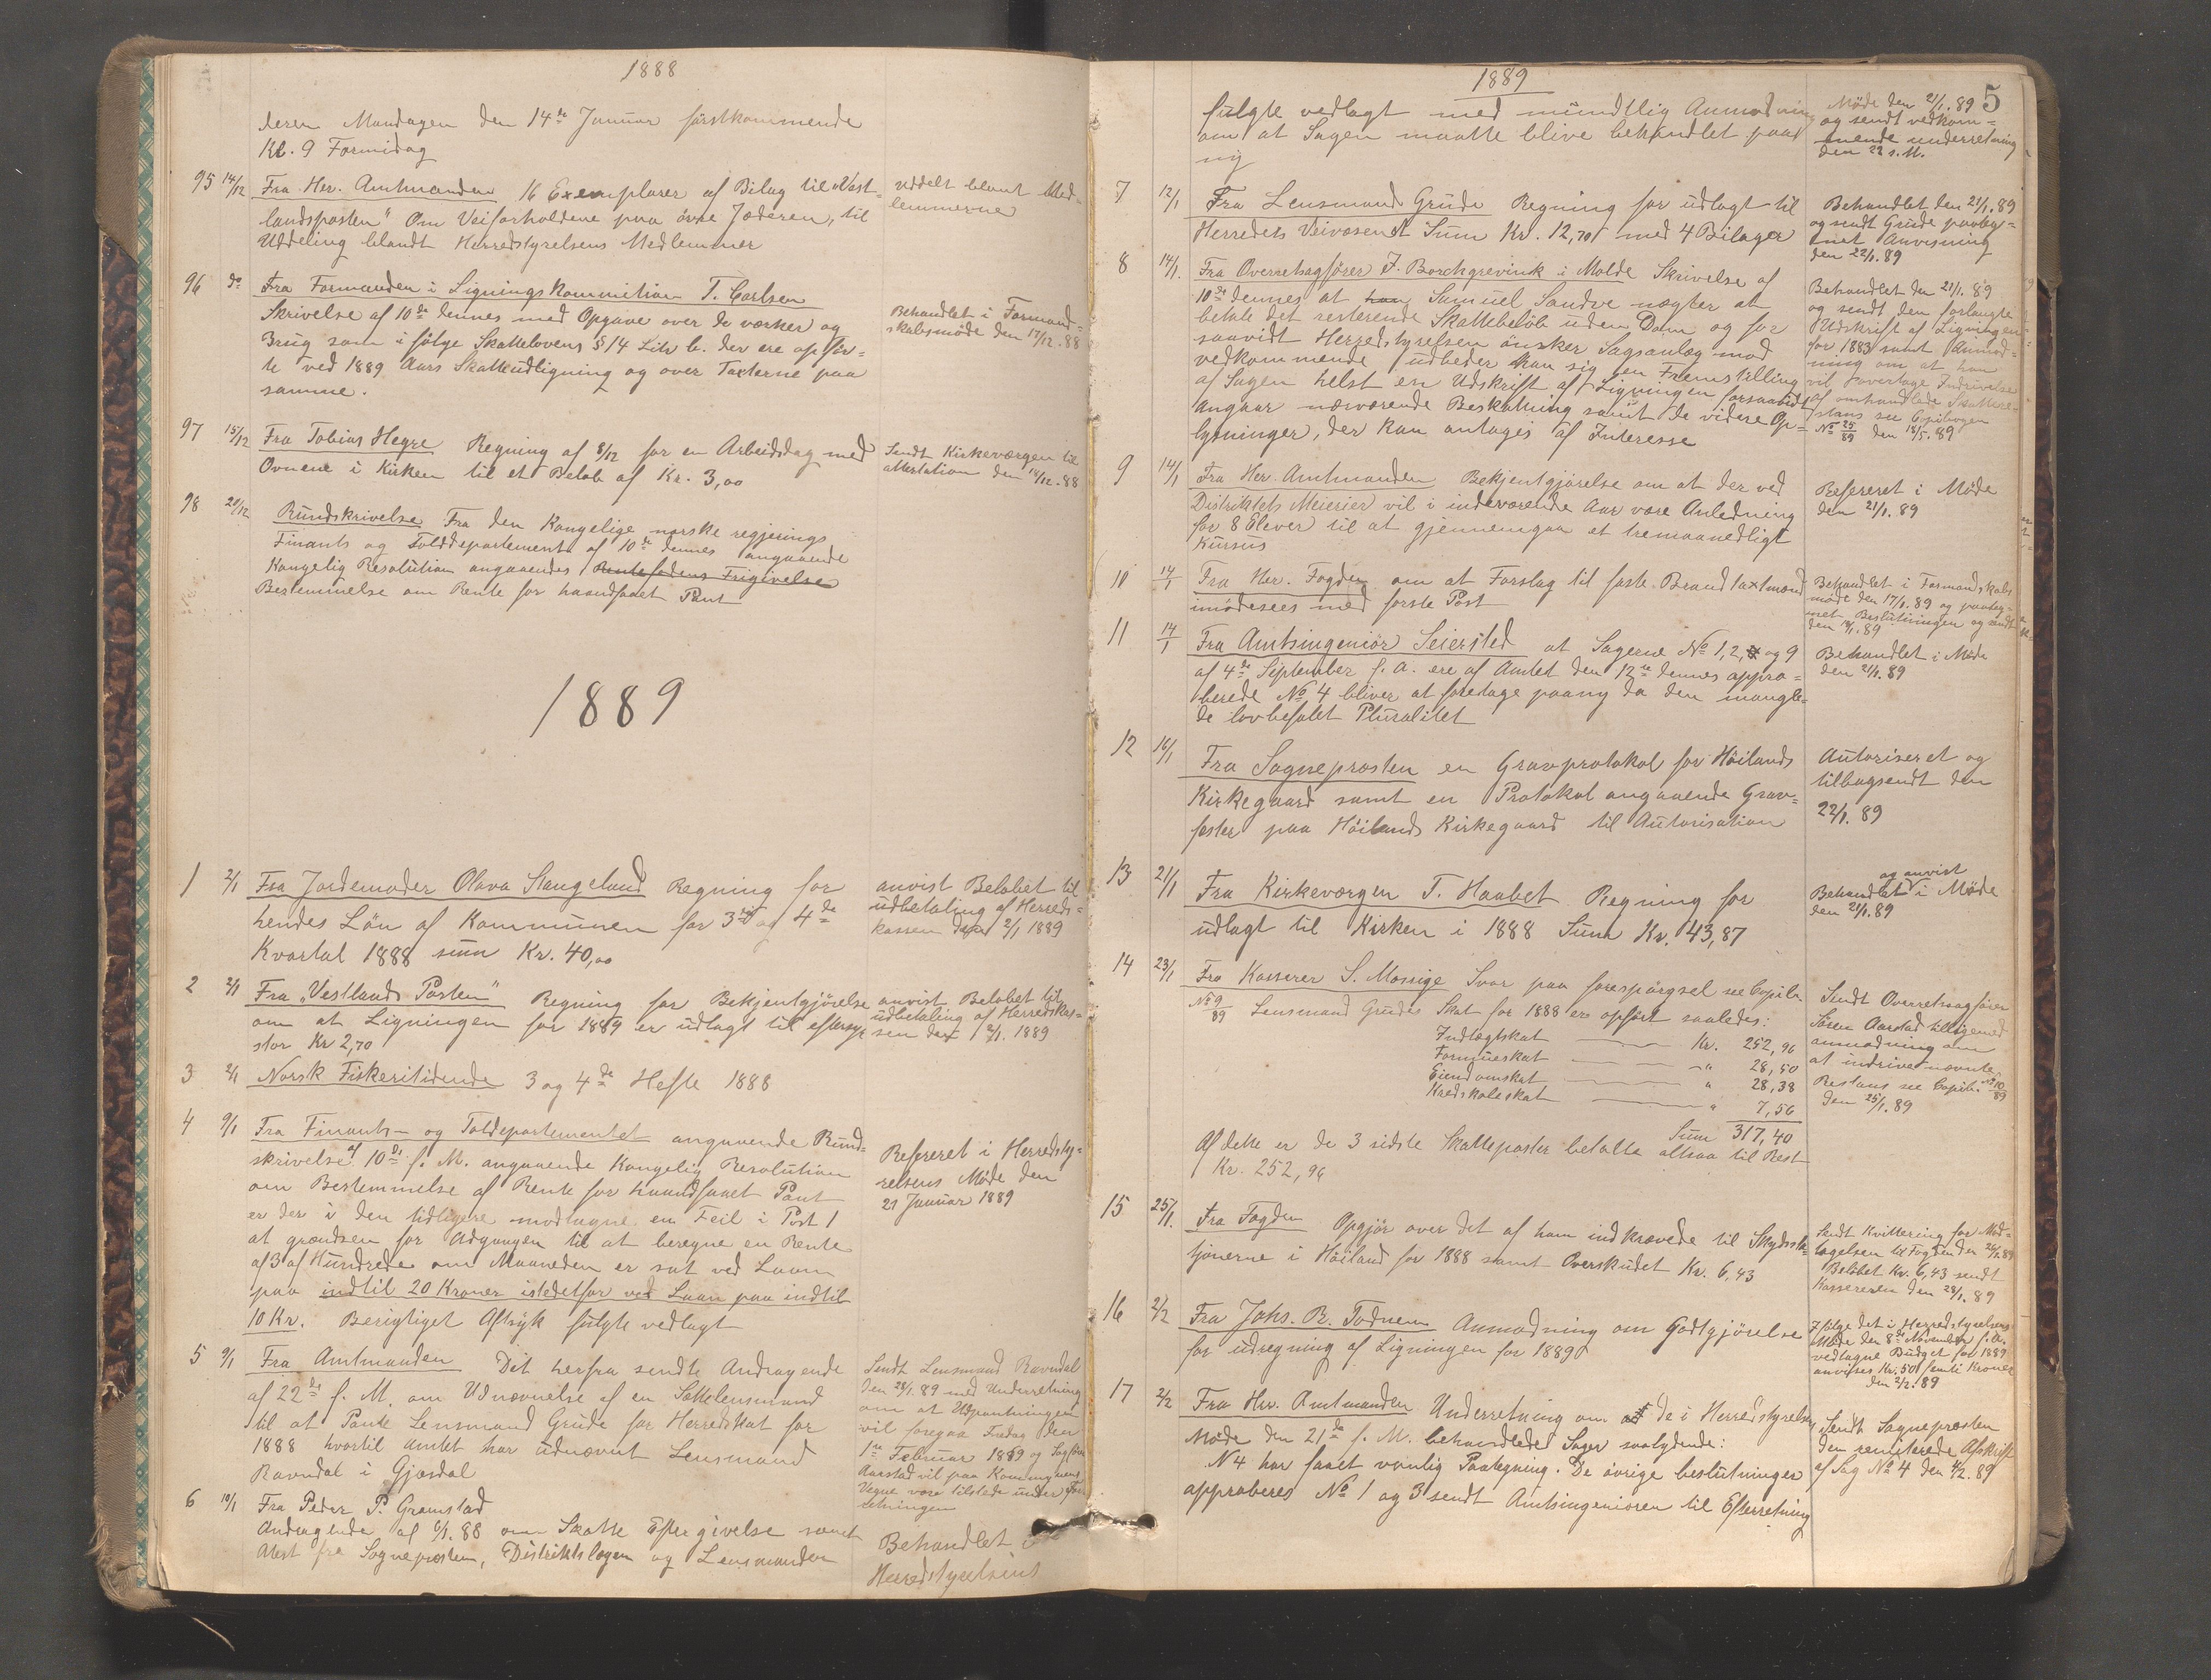 1888
deren Mandagen den 14de Januar förstkommende
Kl. 9 Formidag
95 14/12 Fra Her. Amtmanden 16 Exemplarer af Bilag til "Vest-
landsposten" Om Veiforholdene paa övre Jæderen, til
Uddeling blandt Herredstyrelsens Medlemmer
uddelt blant Med-
lemmerne
96 do Fra Formanden i Ligningskommition T. Carlsen
Skrivelse af 10de dennes med Opgave over de værker og
Brug som i fölge Skattelovens § 14 Litr b. der ere opför-
te ved 1889 Aars Skatteudligning og over Taxterne paa
samme.
Behandlet i Formand-
skabsmöde den 17/12. 88
97 15/12 Fra Tobias Hegre Regning af 8/12 for en Arbeidsdag med
Ovnene i Kirken til et Belöb af Kr. 3,00
Sendt Kirkeværgen til
attestation den 18/12. 88
98 20/12 Rundskrivelse Fra den Kongelige norske regjerings
Finants og Tolddepartement af 10de dennes angaaende
Kongelig Resolution angaaendes Rentefodens Frigivelse
Bestemmelse om Rente for haandfaaet Pant
1889
1 2/1 Fra Jordemoder Olava Stangeland Regning for
hendes Lön af Kommunen for 3die og 4de
Kvartal 1888 sum Kr. 40,00
anvist Belöbet til
udbetaling af Herreds-
kassen den 2/1 1889
2 2/1 Fra "Vestlands Posten" Regning for Bekjentgjörelse
om at Ligningen for 1889 er udlagt til eftersyn
stor Kr 2,70
anvist Belöbet til
udbetaling af Herredskas-
sen den 2/1. 1889
3 2/1 Norsk Fiskeritidende 3 og 4de Hefte 1888
4 9/1 Fra Finants- og Toldepartementet angaaende Rund-
skrivelse af 10de f. M. angaaende Kongelig Resolution
om Bestemmelse af Rente for haandfaaet Pant
er der i den tidligere modtagne en Feil i Post 1
at grændsen for Adgangen til at beregne en Rente
af 3 af Hundrede om Maaneden er sat ved Laan
paa indtil 20 Kroner istedetfor ved Laan paa indtil
10 Kr. Berigtiget Aftryk fulgte vedlagt
Refereret i Herredsty-
relsens Möde den
21 Januar 1889
5 9/1 Fra Amtmanden Det herfra sendte Andragende
af 22de f. M. om Udnævnelse af en Sættelensmand
til at Pante Lensmand Grude for Herredskat for
1888 hvortil Amtet har udnævnt Lensmand
Ravndal i Gjæsdal
Sendt Lensmand Ravndal
den 28/1. 89 med Underretning
om at Udpantningen
vil foregaa Fredag den
1ste Februar 1889 og Sagförer
Aarstad vil paa Kommunens
Vegne være tilstede under
retningen
6 10/1 Fra Peder P. Gramstad
Andragende af 6/1. 88 om Skatte Eftergivelse samt
Atest fra Sognepresten, Distriktslægen og Lensmanden
Behandlet i
Herredstyrelsens
1889
5
fulgte vedlagt med mundtlig Anmodning
om at Sagen maatte blive behandlet paa
ny
Möde den 21/1. 89
og sendt vedkom-
mende underretning
den 22 s. M.
7 12/1 Fra Lensmand Grude Regning for udlagt til
Herredets Veivæsenet Sum Kr. 12,70 med 4 Bilager
Behandlet den 21/1. 89
og sendt Grude paateg-
net Anvisning
den 22/1. 89
8 14/1. Fra Overretsagförer J. Borchgrevink i Molde Skrivelse af
10de dennes at han Samuel Sandve nægter at
betale det resterende Skattebelöb uden Dom og for
saavidt Herredstyrelsen önsker Sagsanlæg mod
vedkommende udbeder han sig en Fremstilling
af Sagen helst en Udskrift af Ligningen forsaavidt
angaar nærværende Beskatning samt de videre Op-
lysninger, der kan antages af Interesse
Behandlet den 21/1. 89
og sendt den forlangte
Udskrift af Ligningen
for 1883 samt Anmod-
ning om at han
vil overtage Indrivelse
af omhandlede Skattere-
stans see Copibogen
No 25/89 den 18/5. 89
9 14/1 Fra Her. Amtmanden Bekjentgjörelse om at der ved
Distriktets Meierier vil i indeværende Aar være Anledning
for 8 Elever til at gjennemgaa et tremaanedligt
Kursus
Refereret i Möde
den 21/1. 89
10 14/1 Fra Her. Fogden om at Forslag til faste Brandtaxtmænd
imödesees med förste Post
Behandlet i Formandskabs
möde den 17/1. 89 og paateg-
net Beslutningen og sendt
den 18/1. 89
11 14/1 Fra Amtsingeniör Seiersted at Sagerne No 1, 2, og 9
af 4de September f. A. ere af Amtet den 12te dennes appro-
berede No 4 bliver at foretage paany da den mangle-
de lovbefalet Pluralitet
Behandlet i Möde
den 21/1. 89
12 16/1 Fra Sognepresten en Gravprotokol for Höilands
Kirkegaard samt en Protokol angaaende Grav-
fæster paa Höilands Kirkegaard til Autorisation
Autoriseret og
tilbagsendt den
22/1. 89
13 21/1 Fra Kirkeværgen T. Haabet Regning for
udlagt til Kirken i 1888 Sum Kr. 43,87
og anvist
Behandlet i Möde
den 21/1. 89
14 23/1 Fra Kasserer S. Mossige Svar paa forespörgsel see Copib.
No 9/89 Lensmand Grudes Skat for 1888 er opfört saaledes:
Indtægtskat Kr. 252,96
Formueskat " 28,50
Eiendomskat " 28,38
Kredskoleskat " 7,56
Sum 317,40
Af dette er de 3 sidste Skatteposter betalte altsaa til Rest
Kr. 252,96
Sendt Overretsagförer
Sören Aarstad tilligemed
anmodning om
at indrive nævnte
Restans see Copib. No 10/89
den 25/1. 89
15 25/1. Fra Fogden Opgjör over det af ham indkrævede til Skydssta-
tjonerne i Höiland for 1888 samt Overskudet Kr. 6,43
Sendt Kvittering for Mod-
tagelsen til Fogden den 26/1. 89
Belöbet Kr. 6,43 sendt
Kassereren den 28/1. 89
16 2/2 Fra Johs. R. Todnem Anmodning om Godtgjörelse
for udregning af Ligningen for 1889
Ifölge det i Herredstyrelsens
Möde den 8de November f. A.
vedtagne Budget for 1889
anvises Kr. 50 femti Kroner
den 2/2. 89
17 2/2 Fra Hrr. Amtmanden Underretning om at de i Herredstyrelsens
Möde den 21de f. M. behandlede Sager saalydende:
N 4 har faaet vanlig Paategning. De övrige beslutninger
approberes No 1 og 3 sendt Amtsingeniören til Efterretning
Sendt Sognepresten
den remiterede Afskrift
af Sag No 4 den 4/2. 89